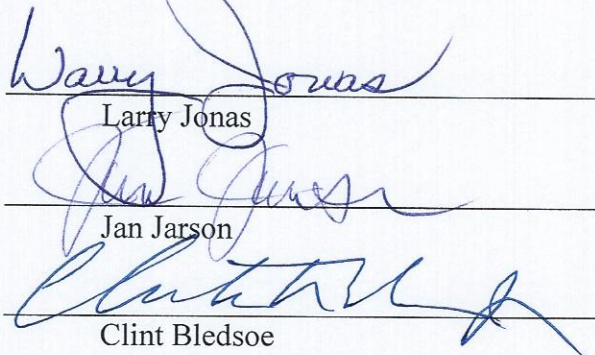 Larry Jonas
Larry Jonas
Jan Jarson
Jan Jarson
Clint Bledsoe